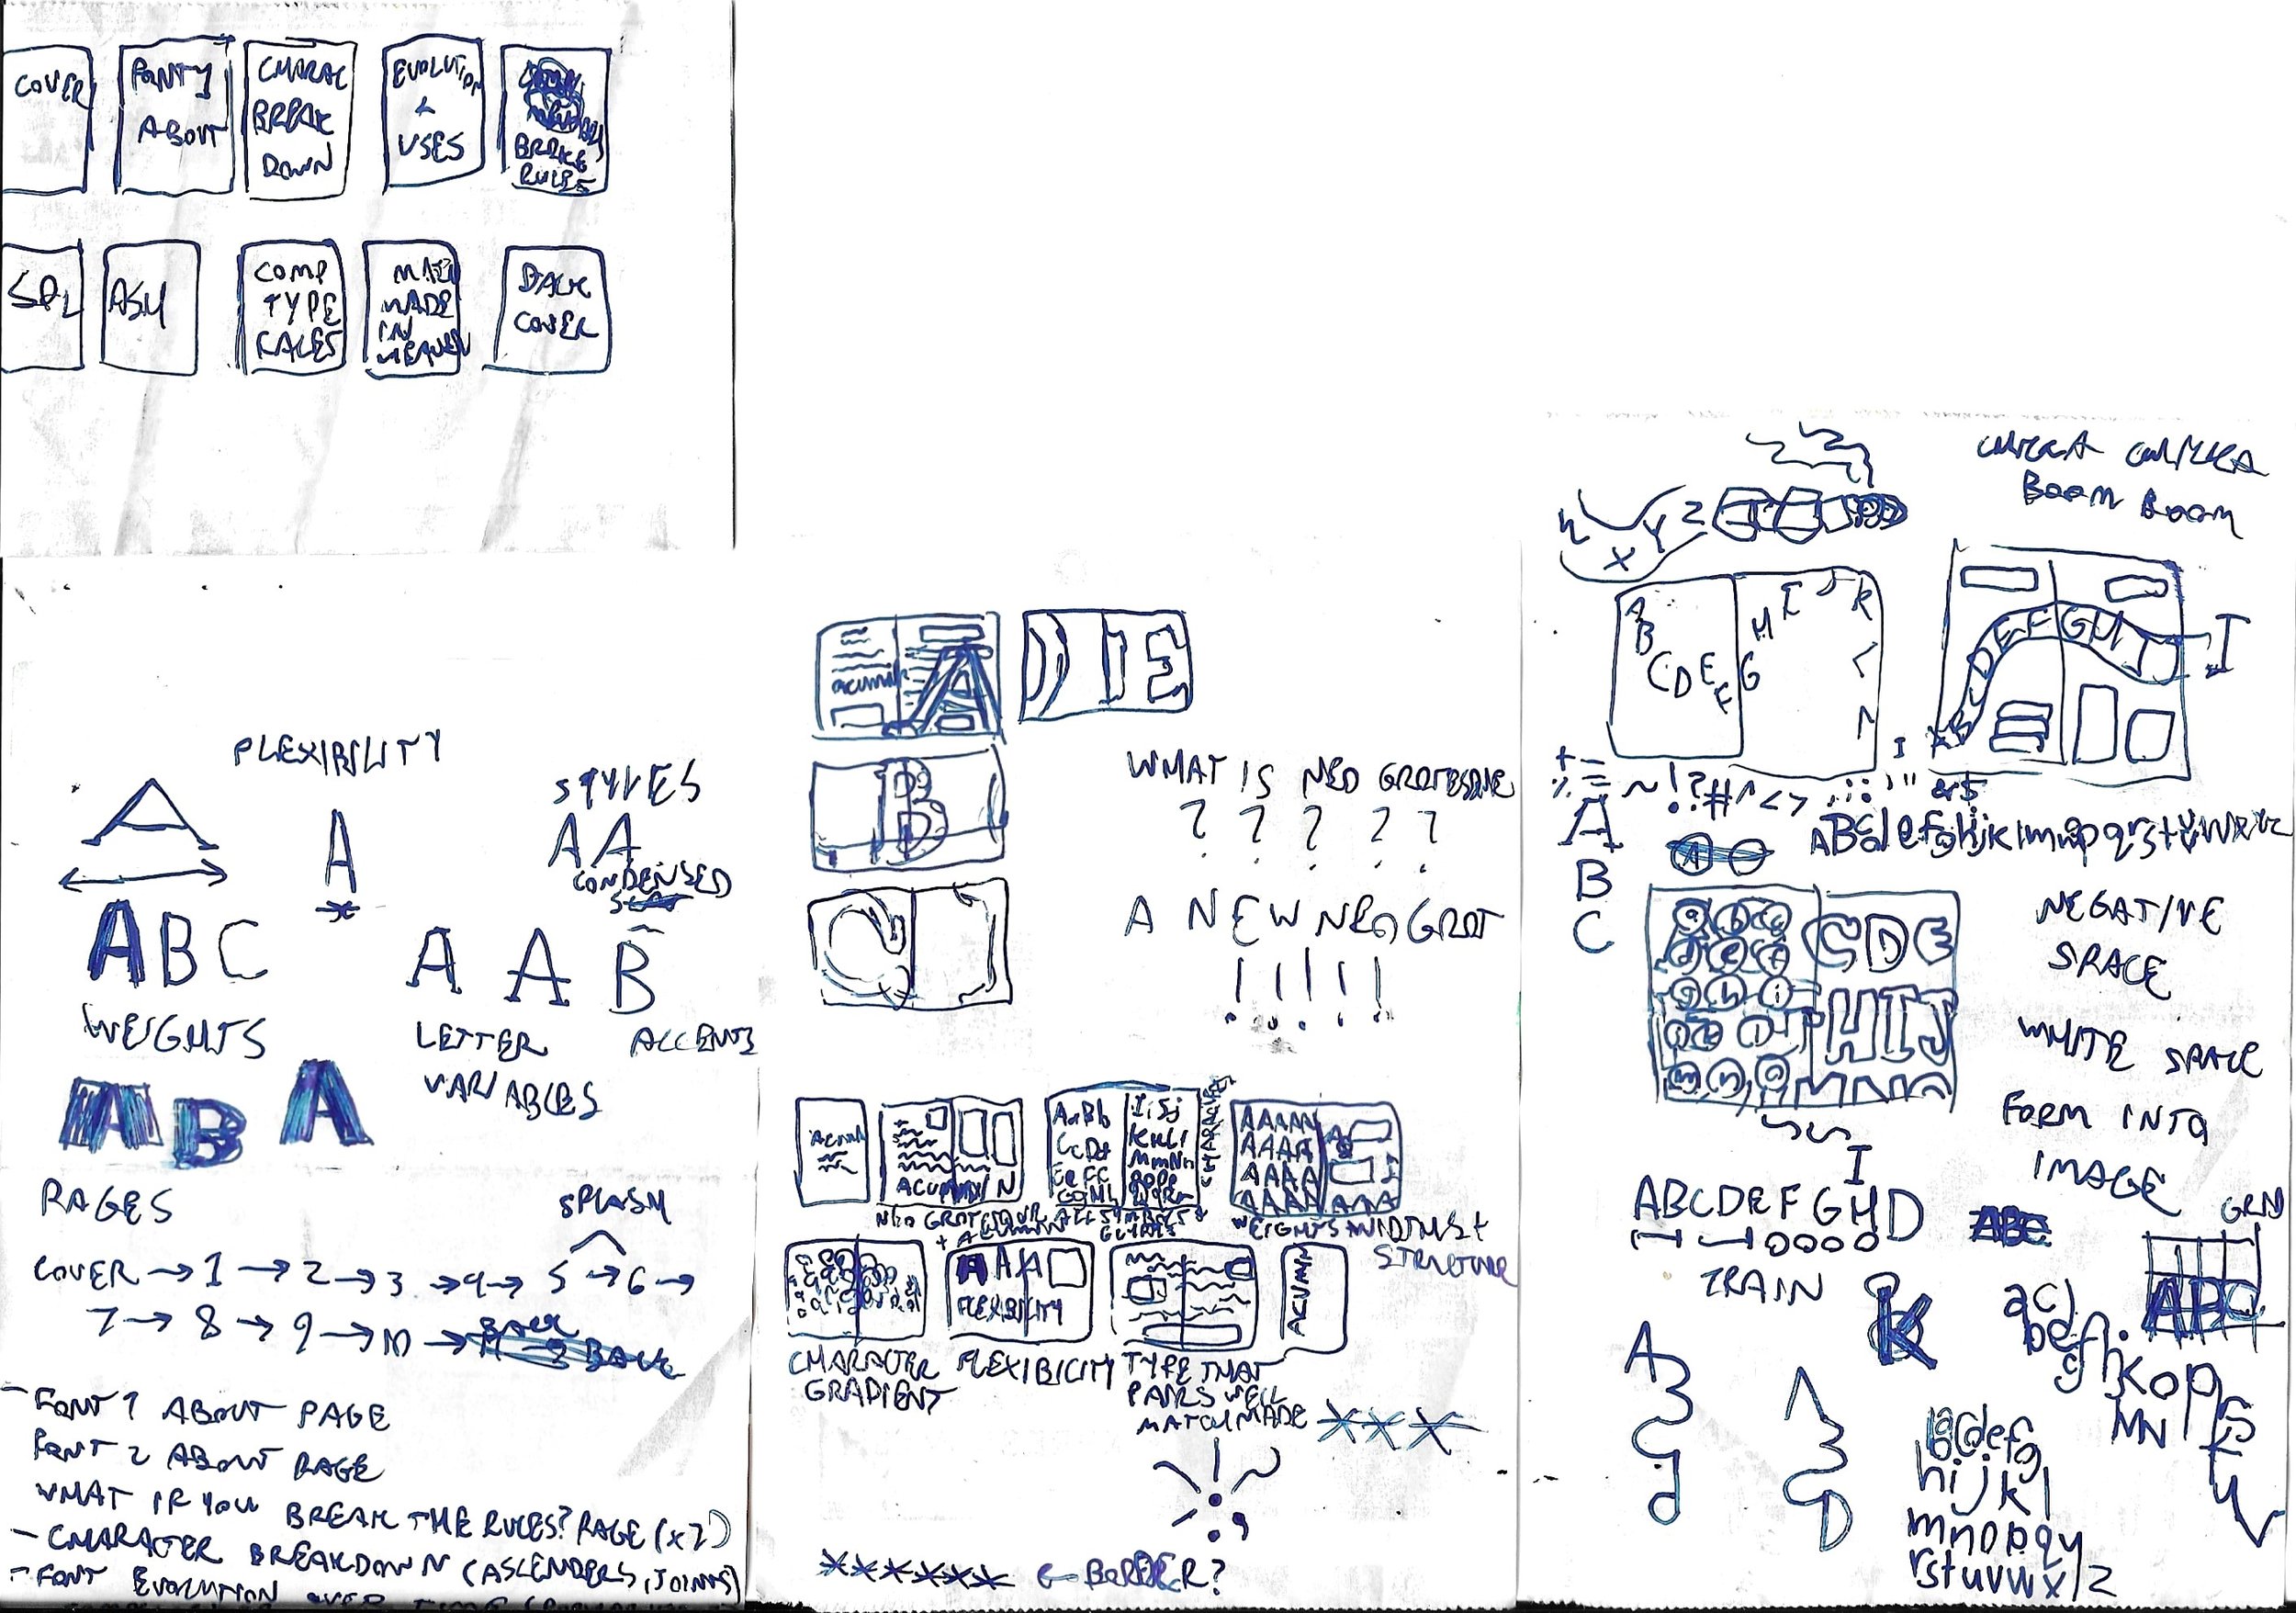 COVER
FONT 1
ABOUT
CHARAC
BREAK
DOWN
EVOLUTION
&
USES
BRAKE
RULES
SPL
ASH
COMP
TYPE
FACES
MATCH
MADE
IN
HEAVEN
BACK
COVER
FLEXIBILITY
A
A
STYLES
A A
CONDENSED
A B C
WEIGHTS
A A B
LETTER
VARIABLES
ACCENTS
A B A
PAGES
SPLASH
COVER → 1 → 2 → 3 → 4 → 5 → 6 →
7 → 8 → 9 → 10 →
- FONT 1 ABOUT PAGE
FONT 2 ABOUT PAGE
WHAT IF YOU BREAK THE RULES? PAGE (x2)
- CHARACTER BREAKDOWN (ASCENDERS, JOINTS)
- FONT EVOLUTION OVER TIME
acumin
A
D E
B
C
WHAT IS NEO GROTESQUE
? ? ? ? ?
A NEW NEO GROT
! ! ! ! !
Acumin
ACUMIN
NEO GROTESQUE
+ ACUMIN
AaBb
CcDd
EeFf
GgHh
IiJj
KkLl
MmNn
OoPp
QqRr
CHARACTER
ALL SYMBOLS +
GLYPHS
AAAAA
AAAA
AAAA
AAAA
AAA
WEIGHTS WIDTHS +
STRUCTURE
CHARACTER
GRADIENT
A A A
FLEXIBILITY
FLEXIBILITY
TYPE THAT
PAIRS WELL
MATCHMADE
ACUMIN
* * *
* * * * * * ← BORDER?
CHICKA CHICKA
BOOM BOOM
W X Y Z
A B C D E F G H I J K L M
A B C D E F G H I J
I
+ -
% = ~ ! ? # ^ < > , . : ; ' " & $
A
B
C
ABcdefghijklmnopqrstuvwxyz
a b c
d e f
g h i
m n o
C D E
H I J
M N O
NEGATIVE
SPACE
WHITE SPACE
FORM INTO
IMAGE
I
ABCDEFGHD
TRAIN
K
GRID
ABC
A
B
C
d
A
B
C
D
a c d
b e f
g h i
j K o p
M N
r s
t
u
V
abcdefg
hijkl
mnopqy
rstuvwxyz